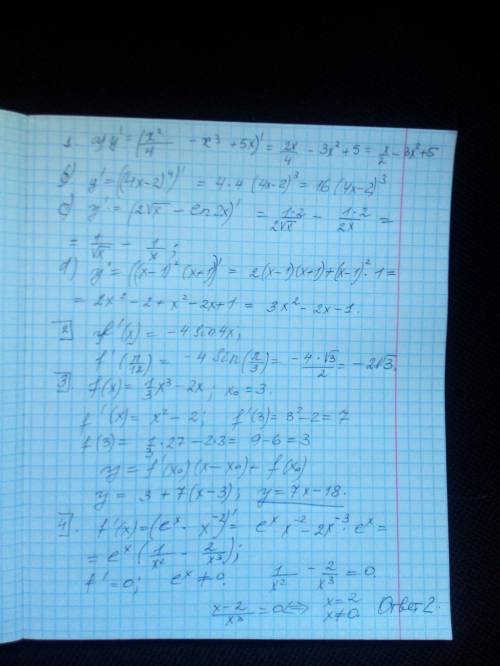 1. a) y' = (x²/4 - x³ + 5x)' = 2x/4 - 3x² + 5 = x/2 - 3x² + 5
b) y' = ((4x-2)⁴)' = 4·4 (4x-2)³ = 16 (4x-2)³
c) y' = (2√x - ln 2x)' = 1·2/2√x - 1·2/2x =
= 1/√x - 1/x ;
d) y' = ((x-1)²(x+1))' = 2(x-1)(x+1) + (x-1)²·1 =
= 2x² - 2 + x² - 2x + 1 = 3x² - 2x - 1.
2 f'(x) = -4 sin 4x;
f'(π/12) = -4 sin(π/3) = -4·√3/2 = -2√3.
3. f(x) = 1/3 x³ - 2x ; x₀ = 3.
f'(x) = x² - 2; f'(3) = 3² - 2 = 7
f(3) = 1/3 · 27 - 2·3 = 9 - 6 = 3
y = f'(x₀)(x - x₀) + f(x₀)
y = 3 + 7(x-3); y = 7x - 18.
4. f'(x) = (eˣ · x⁻²)' = eˣ x⁻² - 2x⁻³ · eˣ =
= eˣ (1/x² - 2/x³);
f' = 0; eˣ ≠ 0. 1/x² - 2/x³ = 0.
x-2/x³ = 0 ⇔ x = 2 x ≠ 0. Ответ 2.